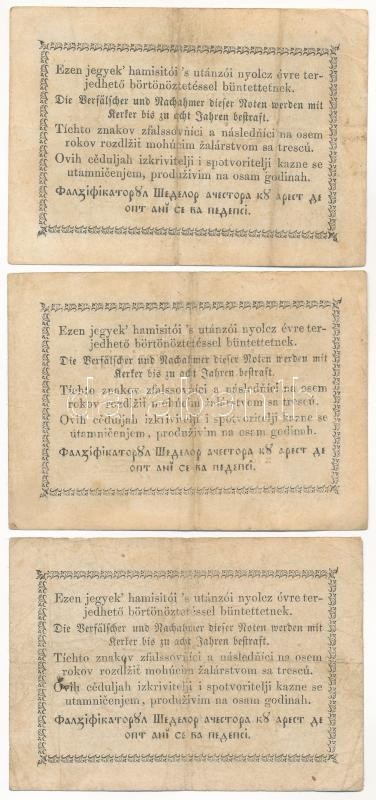 Ezen jegyek' hamisitói 's utánzói nyolcz évre ter-
jedhető börtönöztetéssel büntettetnek.
Die Verfälscher und Nachahmer dieser Noten werden mit
Kerker bis zu acht Jahren bestraft.
Tíchto znakov zfalssovňíci a následňíci na osem
rokov rozdlžit mohúcim žalárstvom sa trescú.
Ovih cěduljah izkrivitelji i spotvoritelji kazne se
utamničenjem, produživim na osam godinah.
Фалꙋіфікаторꙋл Шеделор ачестора кꙋ арест де
опт анї се ва педепсі.
Ezen jegyek' hamisitói 's utánzói nyolcz évre ter-
jedhető börtönöztetéssel büntettetnek.
Die Verfälscher und Nachahmer dieser Noten werden mit
Kerker bis zu acht Jahren bestraft.
Tíchto znakov zfalssovňíci a následňíci na osem
rokov rozdlžit mohúcim žalárstvom sa trescú.
Ovih cěduljah izkrivitelji i spotvoritelji kazne se
utamničenjem, produživim na osam godinah.
Фалꙋіфікаторꙋл Шеделор ачестора кꙋ арест де
опт анї се ва педепсі.
Ezen jegyek' hamisitói 's utánzói nyolcz évre ter-
jedhető börtönöztetéssel büntettetnek.
Die Verfälscher und Nachahmer dieser Noten werden mit
Kerker bis zu acht Jahren bestraft.
Tíchto znakov zfalssovňíci a následňíci na osem
rokov rozdlžit mohúcim žalárstvom sa trescú.
Ovih cěduljah izkrivitelji i spotvoritelji kazne se
utamničenjem, produživim na osam godinah.
Фалꙋіфікаторꙋл Шеделор ачестора кꙋ арест де
опт анї се ва педепсі.